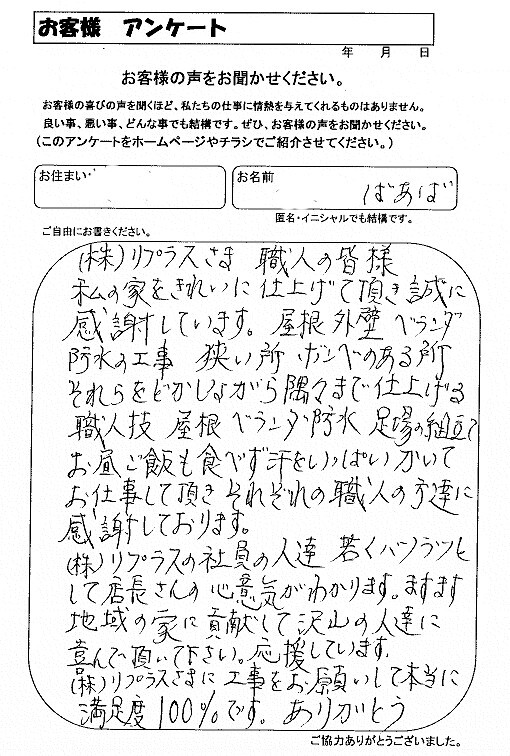 お客様 アンケート
年 月 日
お客様の声をお聞かせください。
お客様の喜びの声を聞くほど、私たちの仕事に情熱を与えてくれるものはありません。
良い事、悪い事、どんな事でも結構です。ぜひ、お客様の声をお聞かせください。
(このアンケートをホームページやチラシでご紹介させてください。)
お住まい
お名前
ばあば
匿名・イニシャルでも結構です。
ご自由にお書きください。
(株)リプラスさま 職人の皆様
私の家をきれいに仕上げて頂き誠に
感謝しています。屋根 外壁 ベランダ
防水の工事 狭い所 ボンベのある所
それらをどかしながら隅々まで仕上げる
職人技 屋根 ベランダ防水 足場の組立て
お昼ご飯も食べず汗をいっぱいかいて
お仕事して頂きそれぞれの職人の方達に
感謝しております。
(株)リプラスの社員の人達 若くハツラツと
して店長さんの心意気がわかります。ますます
地域の家に貢献して沢山の人達に
喜んで頂いて下さい。応援しています。
(株)リプラスさまに工事をお願いして本当に
満足度100%です。ありがとう
ご協力ありがとうございました。